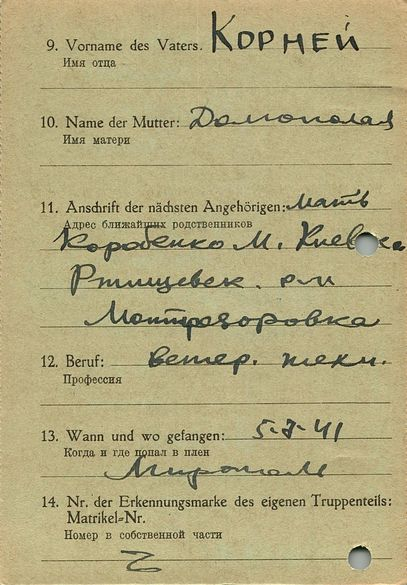 9. Vorname des Vaters. КОРНЕЙ
Имя отца
10. Name der Mutter: Домополая
Имя матери
11. Anschrift der nächsten Angehörigen: мать
Адрес ближайших родственников
Коробенко М. Киевска
Ртищевск. р-н
12. Beruf: ветер. техн.
Профессия
13. Wann und wo gefangen: 5-7-41
Когда и где попал в плен
Мирополь
14. Nr. der Erkennungsmarke des eigenen Truppenteils:
Matrikel-Nr.
Номер в собственной части